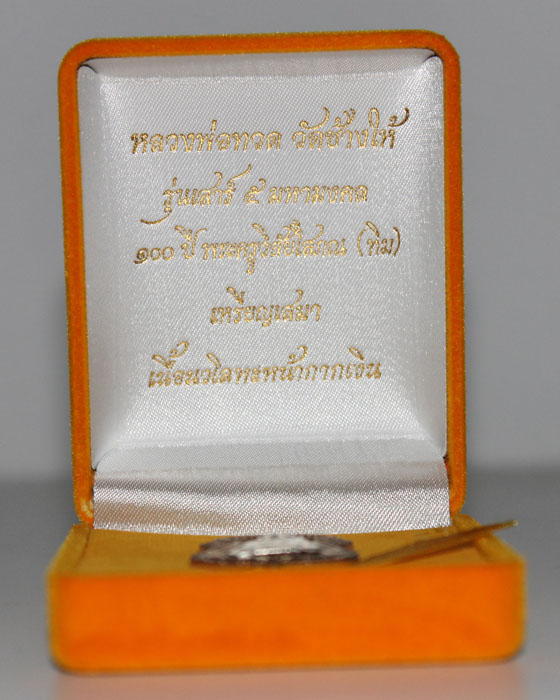 หลวงพ่อทวด วัดช้างให้
รุ่นเสาร์ ๕ มหามงคล
๑๐๐ ปี พระครูวิสัยโสภณ (ทิม)
เหรียญเสมา
เนื้อนวโลหะหน้ากากเงิน